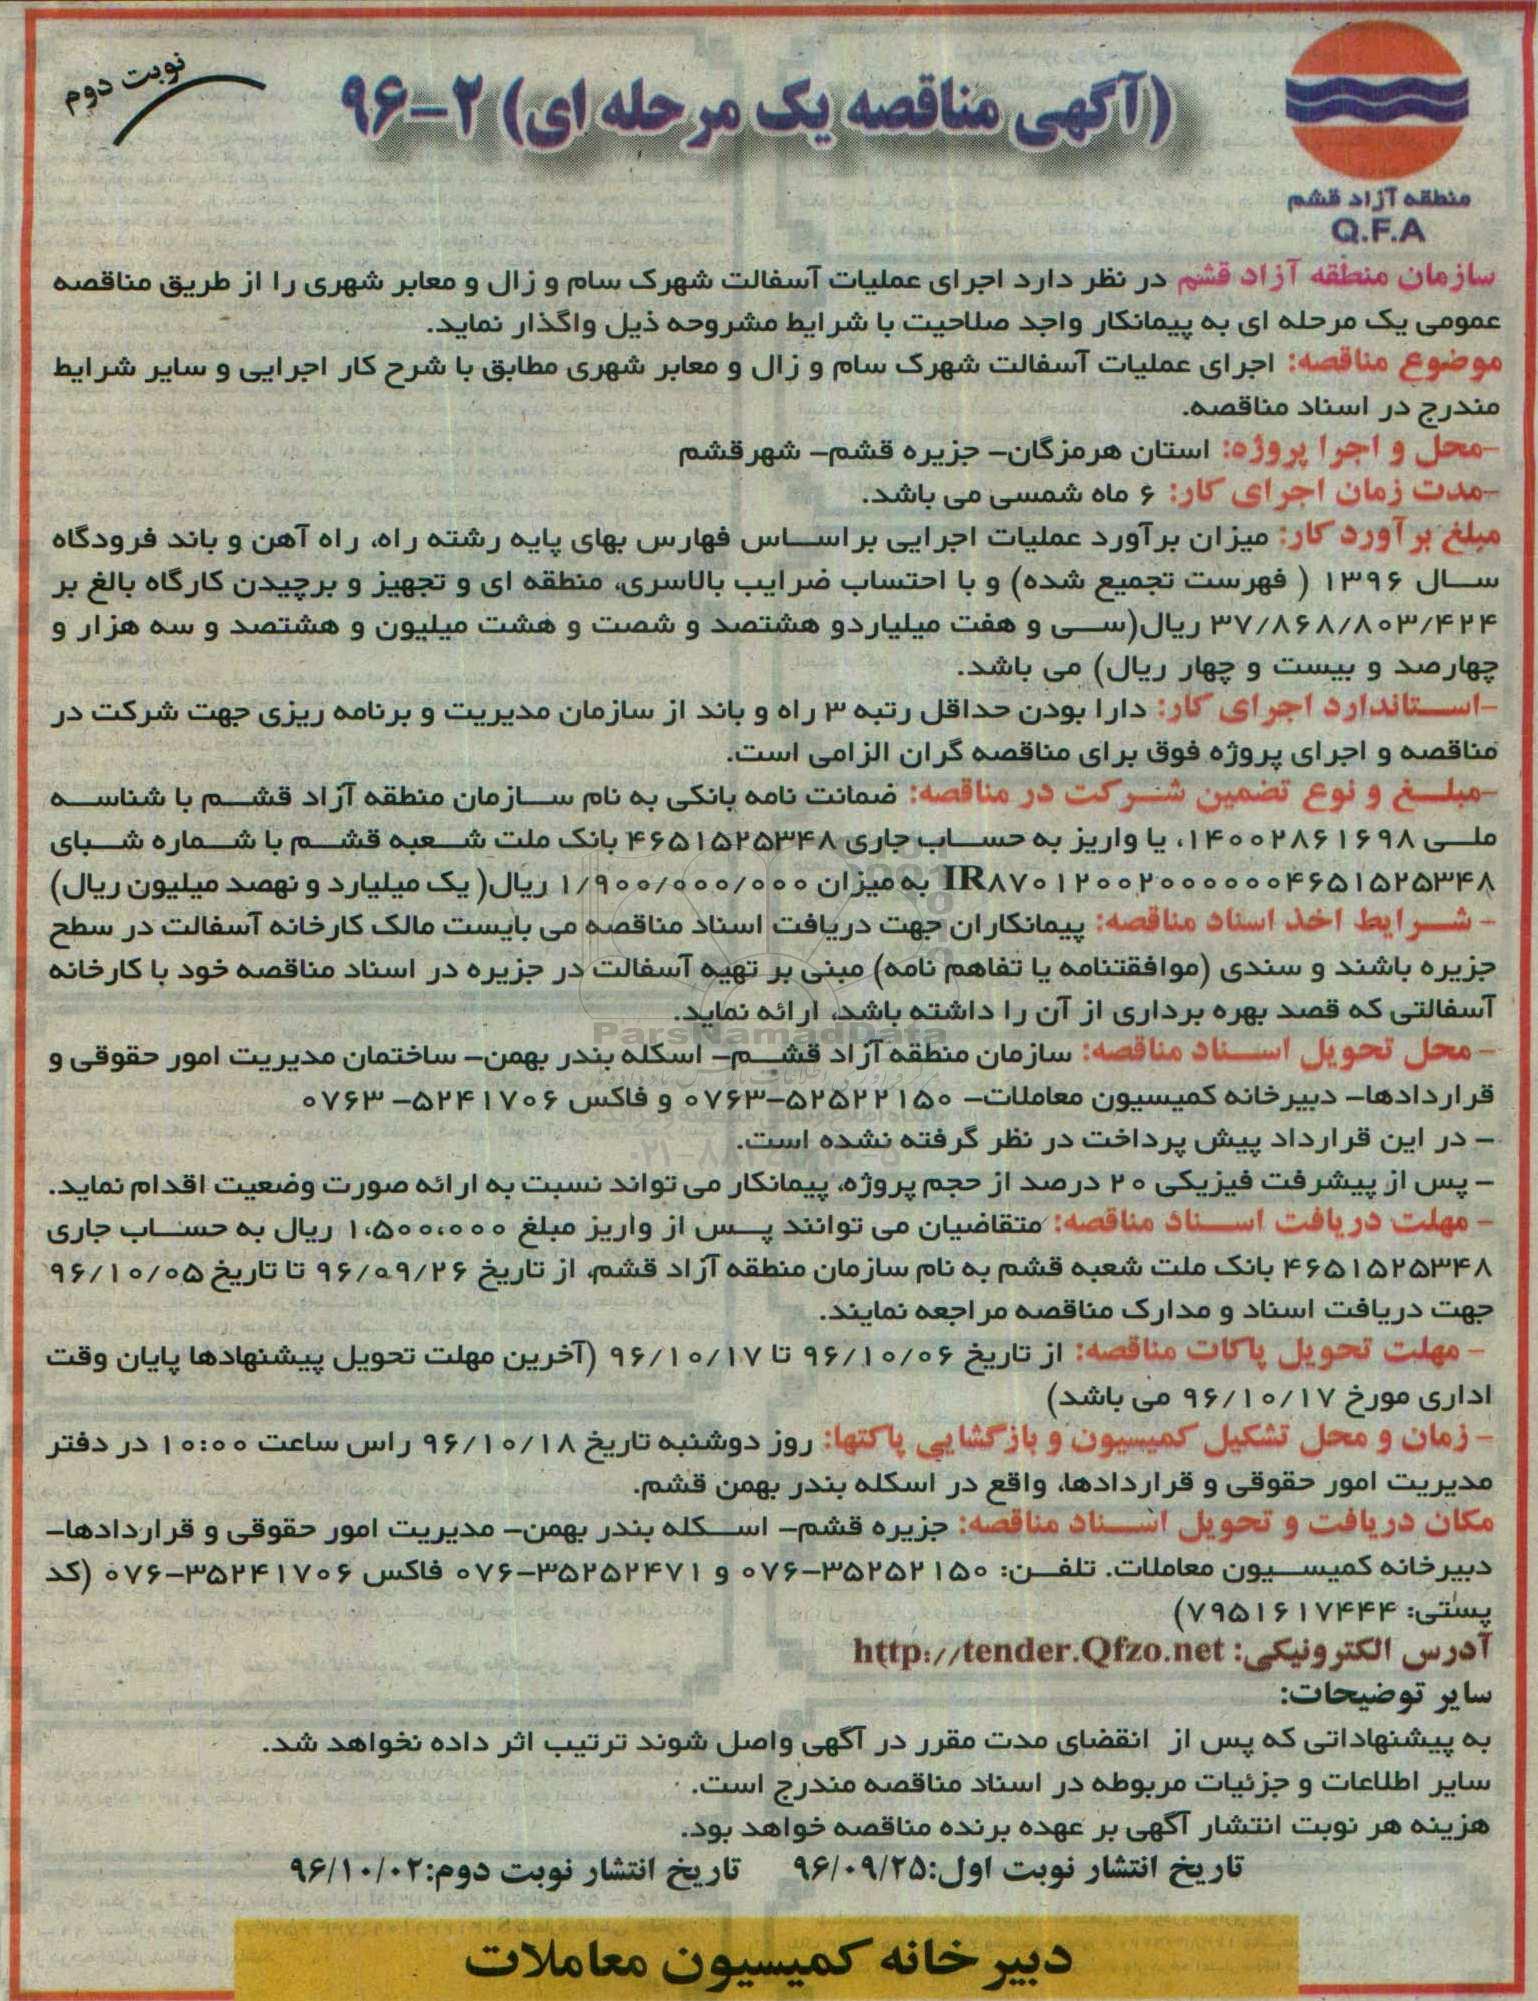 نوبت دوم
(آگهی مناقصه یک مرحله ای) ۲-۹۶
منطقه آزاد قشم
Q.F.A
سازمان منطقه آزاد قشم در نظر دارد اجرای عملیات آسفالت شهرک سام و زال و معابر شهری را از طریق مناقصه
عمومی یک مرحله ای به پیمانکار واجد صلاحیت با شرایط مشروحه ذیل واگذار نماید.
موضوع مناقصه: اجرای عملیات آسفالت شهرک سام و زال و معابر شهری مطابق با شرح کار اجرایی و سایر شرایط
مندرج در اسناد مناقصه.
-محل و اجرا پروژه: استان هرمزگان- جزیره قشم- شهرقشم
-مدت زمان اجرای کار: ۶ ماه شمسی می باشد.
مبلغ برآورد کار: میزان برآورد عملیات اجرایی براساس فهارس بهای پایه رشته راه، راه آهن و باند فرودگاه
سال ۱۳۹۶ ( فهرست تجمیع شده) و با احتساب ضرایب بالاسری، منطقه ای و تجهیز و برچیدن کارگاه بالغ بر
۳۷/۸۶۸/۸۰۳/۴۲۴ ریال(سی و هفت میلیاردو هشتصد و شصت و هشت میلیون و هشتصد و سه هزار و
چهارصد و بیست و چهار ریال) می باشد.
-استاندارد اجرای کار: دارا بودن حداقل رتبه ۳ راه و باند از سازمان مدیریت و برنامه ریزی جهت شرکت در
مناقصه و اجرای پروژه فوق برای مناقصه گران الزامی است.
-مبلغ و نوع تضمین شرکت در مناقصه: ضمانت نامه بانکی به نام سازمان منطقه آزاد قشم با شناسه
ملی ۱۴۰۰۲۸۶۱۶۹۸، یا واریز به حساب جاری ۴۶۵۱۵۲۵۳۴۸ بانک ملت شعبه قشم با شماره شبای
IR۸۷۰۱۲۰۰۲۰۰۰۰۰۰۴۶۵۱۵۲۵۳۴۸ به میزان ۱/۹۰۰/۰۰۰/۰۰۰ ریال( یک میلیارد و نهصد میلیون ریال)
- شرایط اخذ اسناد مناقصه: پیمانکاران جهت دریافت اسناد مناقصه می بایست مالک کارخانه آسفالت در سطح
جزیره باشند و سندی (موافقتنامه یا تفاهم نامه) مبنی بر تهیه آسفالت در جزیره در اسناد مناقصه خود با کارخانه
آسفالتی که قصد بهره برداری از آن را داشته باشد، ارائه نماید.
ParsNamadData
- محل تحویل اسناد مناقصه: سازمان منطقه آزاد قشم- اسکله بندر بهمن- ساختمان مدیریت امور حقوقی و
قراردادها- دبیرخانه کمیسیون معاملات- ۵۲۵۲۲۱۵۰-۰۷۶۳ و فاکس ۵۲۴۱۷۰۶- ۰۷۶۳
- در این قرارداد پیش پرداخت در نظر گرفته نشده است.
- پس از پیشرفت فیزیکی ۲۰ درصد از حجم پروژه، پیمانکار می تواند نسبت به ارائه صورت وضعیت اقدام نماید.
- مهلت دریافت اسناد مناقصه: متقاضیان می توانند پس از واریز مبلغ ۱،۵۰۰،۰۰۰ ریال به حساب جاری
۴۶۵۱۵۲۵۳۴۸ بانک ملت شعبه قشم به نام سازمان منطقه آزاد قشم، از تاریخ ۹۶/۰۹/۲۶ تا تاریخ ۹۶/۱۰/۰۵
جهت دریافت اسناد و مدارک مناقصه مراجعه نمایند.
- مهلت تحویل پاکات مناقصه: از تاریخ ۹۶/۱۰/۰۶ تا ۹۶/۱۰/۱۷ (آخرین مهلت تحویل پیشنهادها پایان وقت
اداری مورخ ۹۶/۱۰/۱۷ می باشد)
- زمان و محل تشکیل کمیسیون و بازگشایی پاکتها: روز دوشنبه تاریخ ۹۶/۱۰/۱۸ راس ساعت ۱۰:۰۰ در دفتر
مدیریت امور حقوقی و قراردادها، واقع در اسکله بندر بهمن قشم.
مکان دریافت و تحویل اسناد مناقصه: جزیره قشم- اسکله بندر بهمن- مدیریت امور حقوقی و قراردادها-
دبیرخانه کمیسیون معاملات. تلفن: ۳۵۲۵۲۱۵۰-۰۷۶ و ۳۵۲۵۲۴۷۱-۰۷۶ فاکس ۳۵۲۴۱۷۰۶-۰۷۶ (کد
پستی: ۷۹۵۱۶۱۷۴۴۴)
آدرس الکترونیکی: http://tender.Qfzo.net
سایر توضیحات:
به پیشنهاداتی که پس از انقضای مدت مقرر در آگهی واصل شوند ترتیب اثر داده نخواهد شد.
سایر اطلاعات و جزئیات مربوطه در اسناد مناقصه مندرج است.
هزینه هر نوبت انتشار آگهی بر عهده برنده مناقصه خواهد بود.
تاریخ انتشار نوبت اول:۹۶/۰۹/۲۵ تاریخ انتشار نوبت دوم:۹۶/۱۰/۰۲
دبیرخانه کمیسیون معاملات